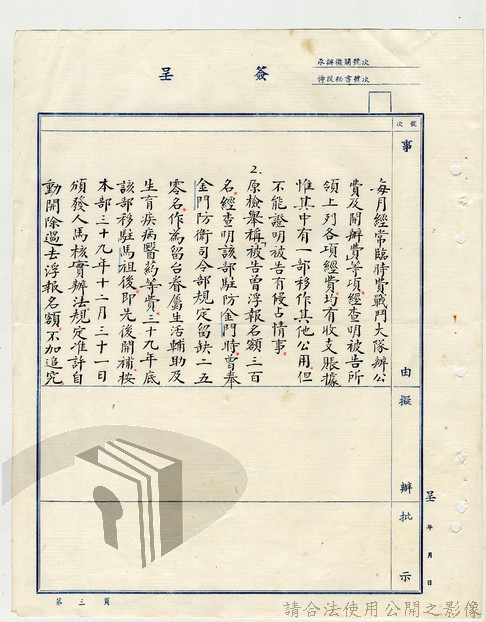 簽呈
承辦機關號次
次號
事
由
擬
辦
批
示
每月經常臨時費戰鬥大隊辦公
費及開辦費等項經查明被告所
領上列各項經費均有收支賬據
惟其中有一部移作其他公用但
不能證明被告有侵占情事。
2.原檢舉稱「被告曾浮報名額三百
名」經查明該部駐防金門時曾奉
金門防衛司令部規定留缺二五
零名作為留台眷屬生活輔助及
生育疾病醫葯等費三十九年底
該部移駐馬祖後即先後開補按
本部三十九年十二月三十一日
頒發人馬核實辦法規定准許自
動開除過去浮報名額不加追究
呈
年
月
日
第三頁
請合法使用公開之影像